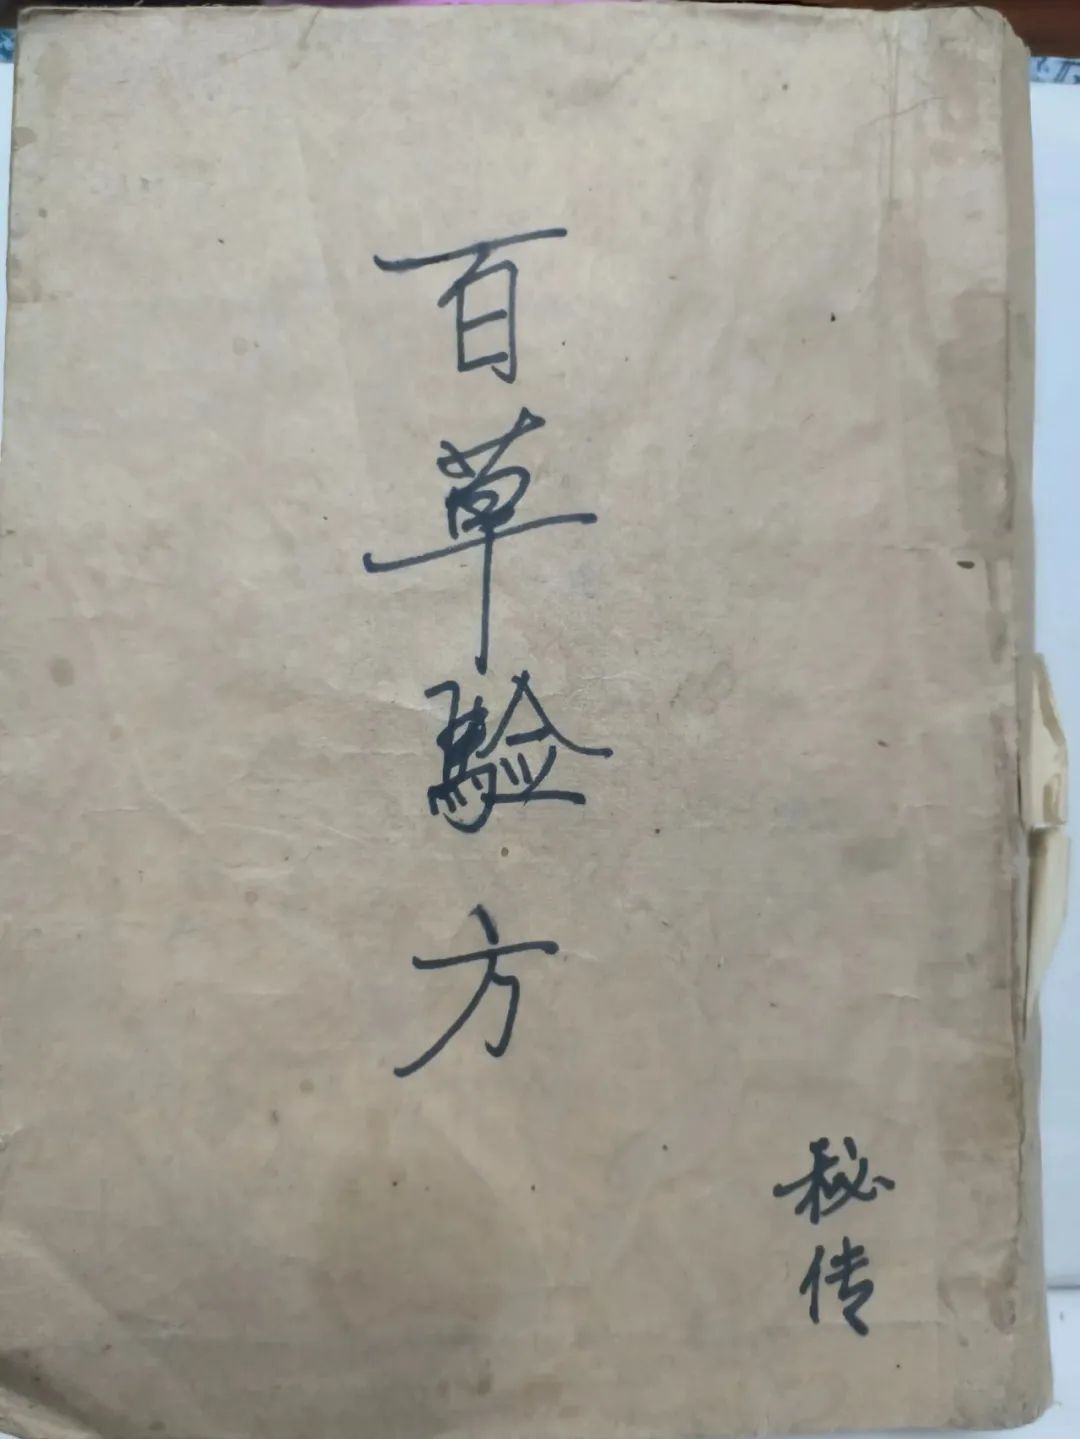 百草验方
秘传